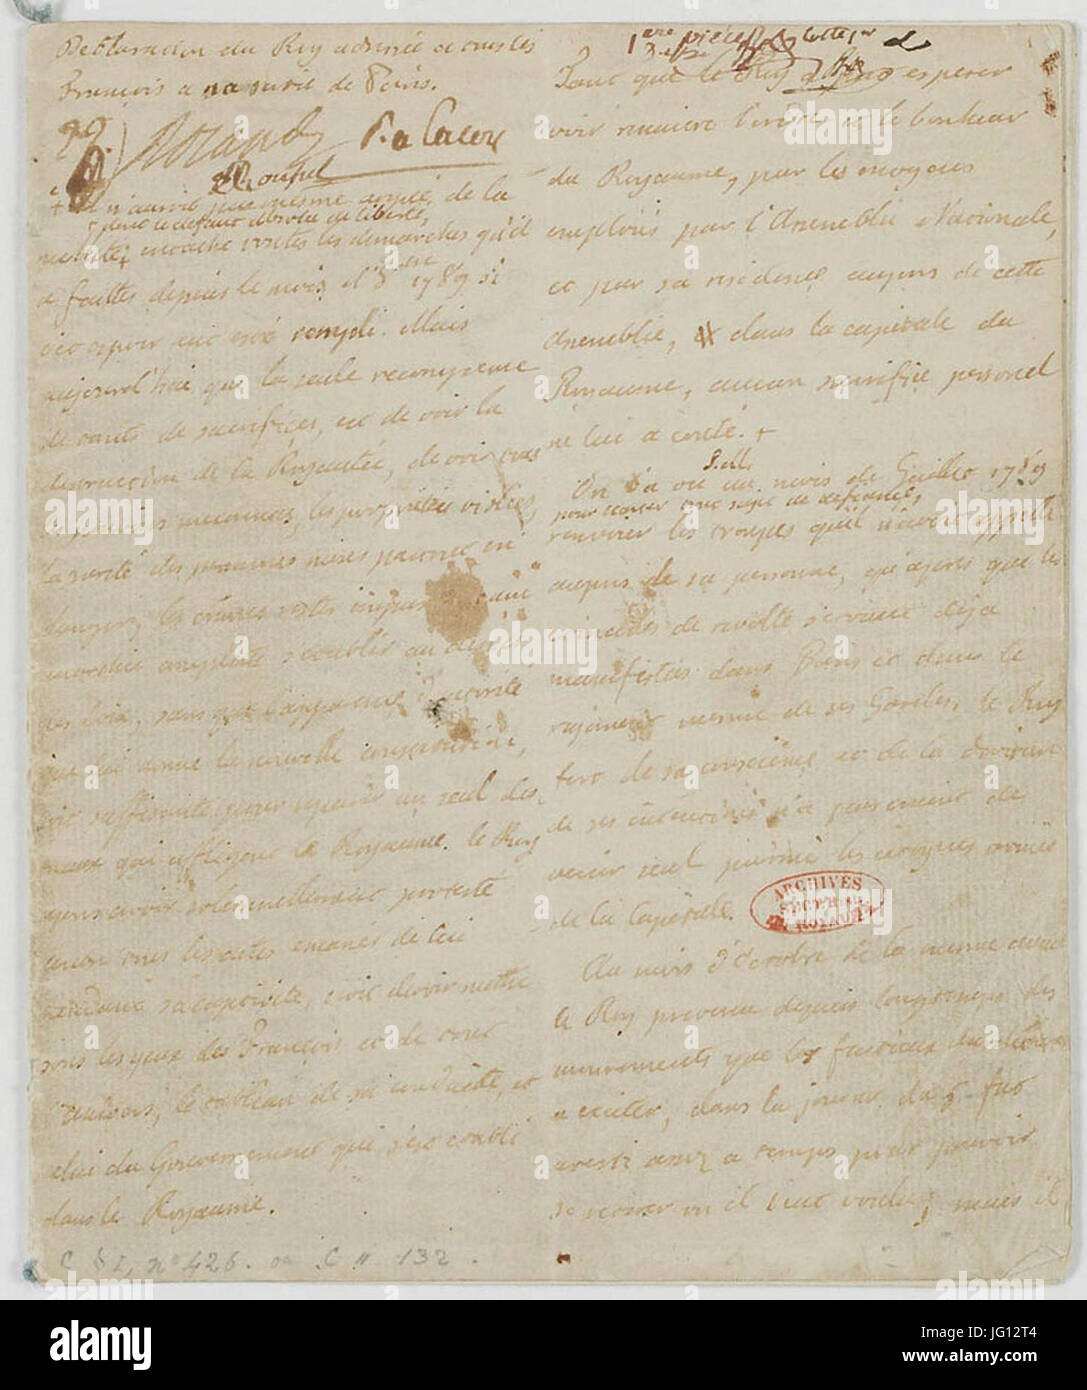 Declaration du Roy adressée a tous les
François a sa sortie de Paris.
+ n'auroit pas même argué, de la
+ dans le defaut absolu de liberté,
nullité + entache toutes les demarches qu'il
a faittes depuis le mois d'8bre 1789 si
cet espoir eut eté rempli. Mais
aujourd'hui que la seule recompense
de tants de sacrifices, est de voir la
destruction de la Royauté, de voir tous
les pouvoirs meconnus, les proprietés violées,
la sureté des personnes mises partout en
danger, les crimes restés impunis, et une
anarchie complette s'etablir au dessus
des loix, sans que l'apparence d'autorité
que lui donne la nouvelle constitution,
soit suffisante pour reparer un seul des
maux qui affligent le Royaume. le Roy
ayant solemnellement protesté
contre tous les actes emanés de lui
pendant sa captivité, croit devoir mettre
sous les yeux des François et de tout
l'univers, le tableau de sa conduitte, et
celui du Gouvernement qui s'est etabli
dans le Royaume.
C § I, n° 426. ou C II 132.
1ere piece cotte
Tant que le Roy a pu esperer
voir renaitre l'ordre et le bonheur
du Royaume, par les moyens
employés par l'Assemblée Nationale,
et par sa residence aupres de cette
Assemblée, dans la capitale du
Royaume, aucun sacrifice personel
ne lui a couté. +
On l'a vu au mois de Juillet 1789
pour écarter tout sujet de defiance,
renvoyer les troupes qu'il n'avoit appellé
aupres de sa personne, qu'apres que les
etincelles de revolte s'etoient deja
manifestées dans Paris et dans le
regiment meme de ses Gardes, le Roy
fort de sa conscience et de la droiture
de ses intentions n'a pas craint de
venir seul parmi les citoyens armés
de la Capitale.
ARCHIVES
SECTION
DU ROYAUME
Au mois d'octobre de la meme année
le Roy prevenu depuis longtemps des
mouvements que les factieux
a exciter, dans la journée du 5 fut
averti assez a temps pour pouvoir
se retirer ou il eut voulu; mais il
alamy
Image ID: JG12T4
www.alamy.com